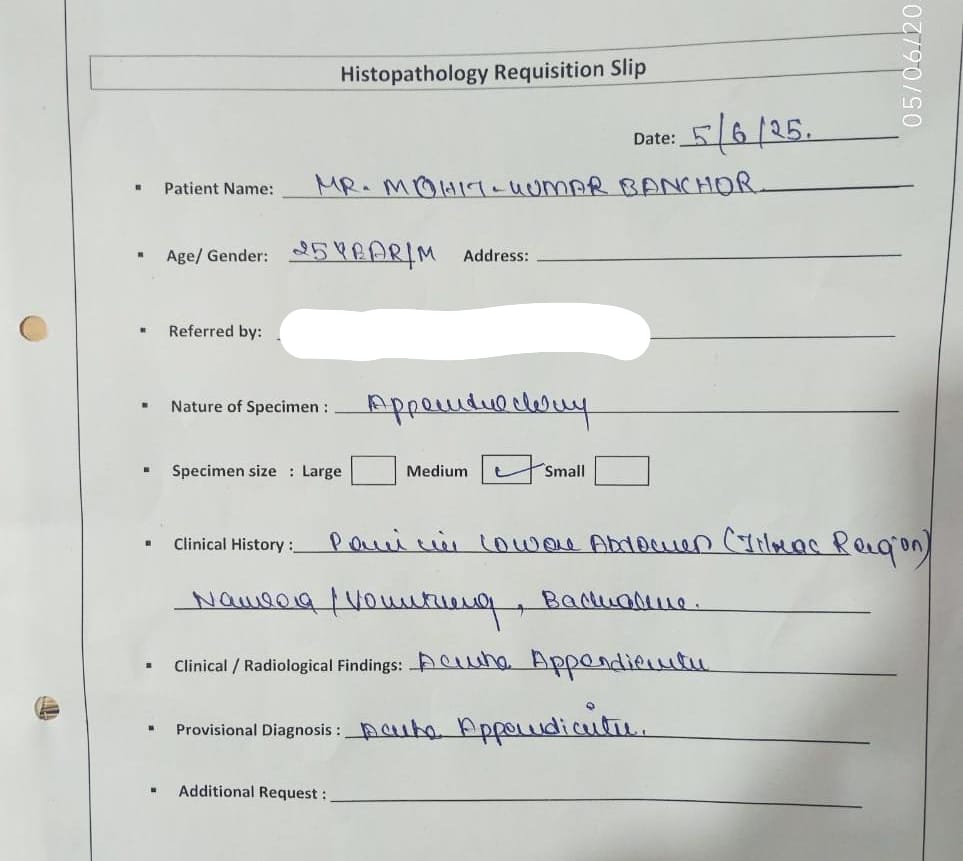 05/06/20
Histopathology Requisition Slip
Date: 5/6/25.
Patient Name: MR. MOHIT-KUMAR BANCHOR
Age/ Gender: 25 YEAR/M Address:
Referred by:
Nature of Specimen : Appendectomy
Specimen size : Large Medium ✓ Small
Clinical History : Pain in Lower Abdomen (Iliac Region)
Nausea / Vomiting, Backache.
Clinical / Radiological Findings: Acute Appendicitis
Provisional Diagnosis : Acute Appendicitis.
Additional Request :